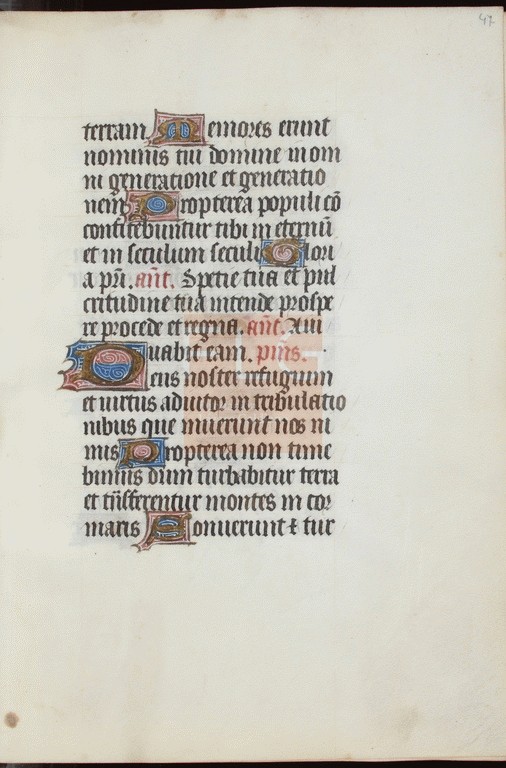 47
terram Memores erunt
nominis tui domine in om
ni generatione et generatio
nem Propterea populi cō
confitebuntur tibi in eternū
et in seculum seculi Glori
a pr̄i. ant̄. Specie tua et pul
critudine tua intende prospe
re procede et regna. ant̄. Adiu
uabit eam. p̄us.
Deus noster refugium
et uirtus adiutor in tribulatio
nibus que inuenerunt nos ni
mis Propterea non time
bimus dum turbabitur terra
et transferentur montes in cor
maris Sonuerunt & tur